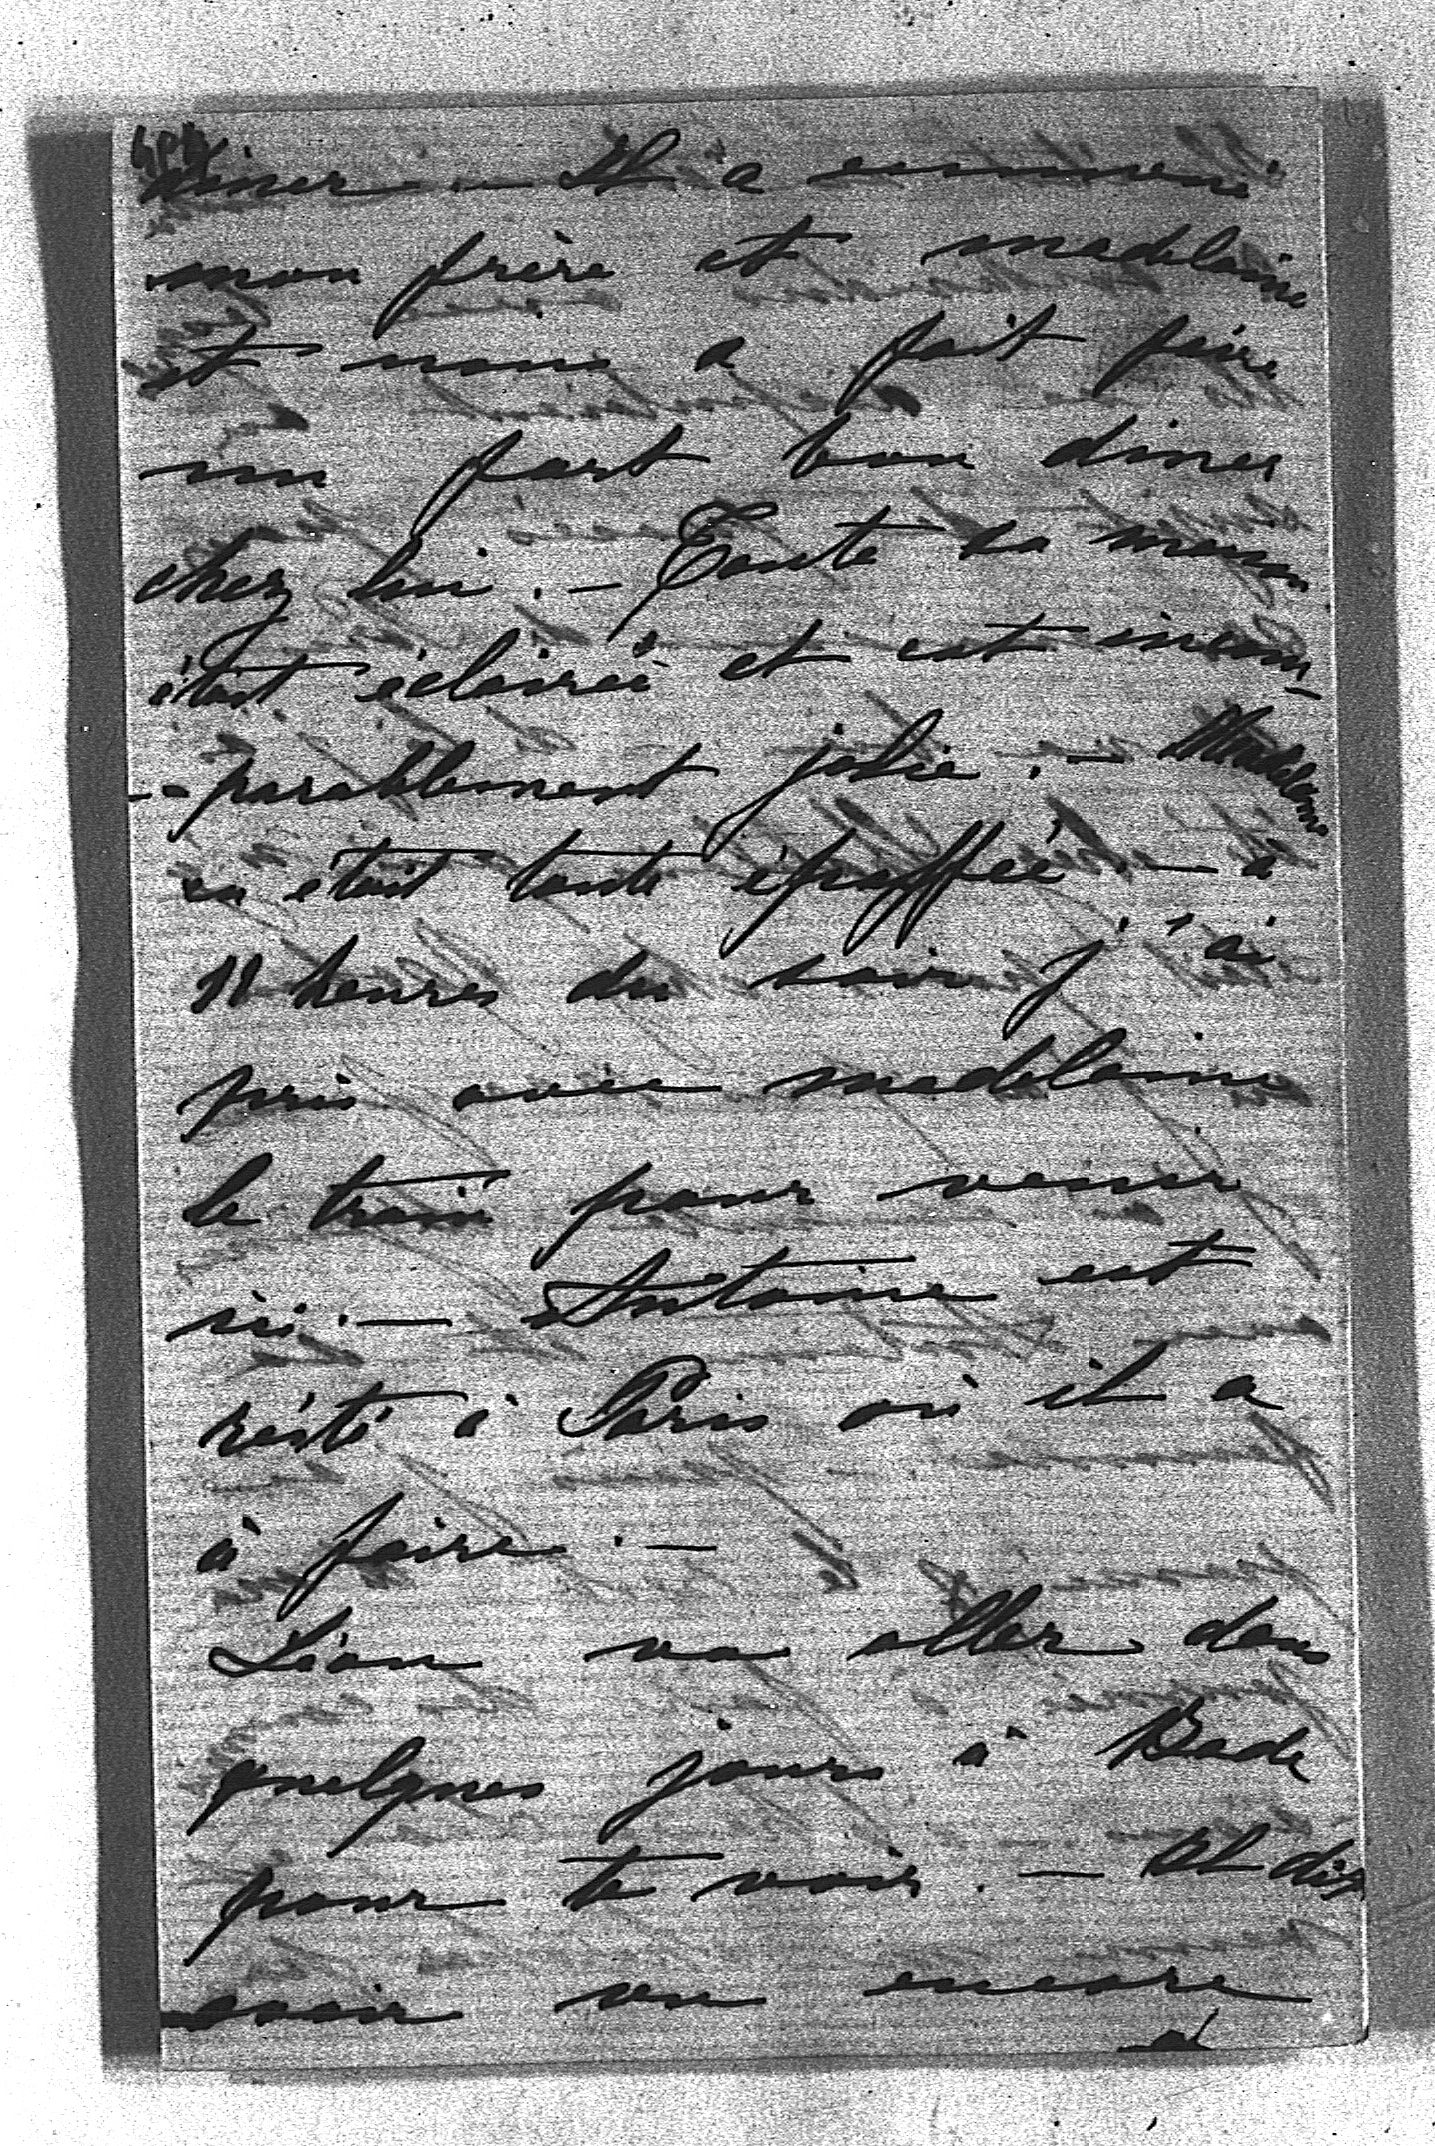 diner — Il a emmené
mon frère et madelaine
et nous a fait faire
un fort bon diner
chez lui. — Toute sa maison
était éclairée et est incom-
-parablement jolie. — Madelaine
en était toute épaffée — à
11 heures du soir j'ai
pris avec madelaine
le train pour venir
ici. — Antoine est
resté à Paris où il a
à faire. —
Léon va aller dans
quelques jours à Bade
pour te voir. — Il dit
avoir vu encore